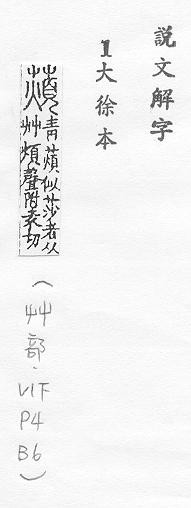 說文解字
1大徐本
薠青薠似莎者从
艸煩聲附袁切
（艸部．V1下
P4
B6）